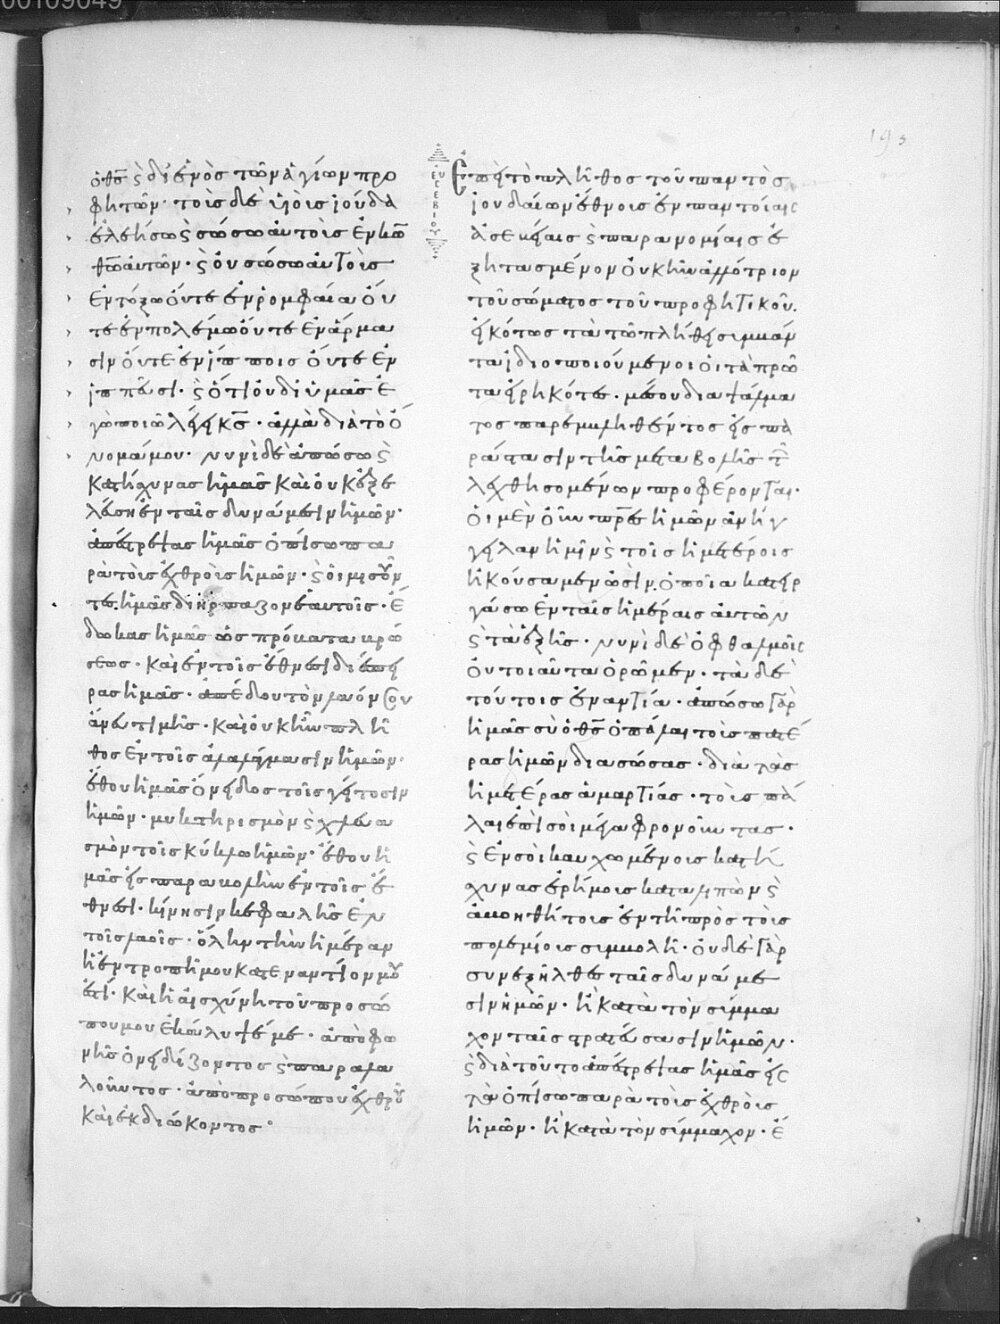 00109049
193
ὁ θ̅ς̅ ϛ δι ἑνὸς τῶν ἁγίων προ
φητῶν· τοὺς δὲ υἱοὺς ἰούδα
ἐλεήσω ϛ σώσω αὐτοὺς ἐν κ̅ω̅
θ̅ω̅ αὐτῶν· ϛ οὐ σώσω αὐτοὺς
ἐν τόξω οὔτε ἐν ῥομφαία οὔ
τε ἐν πολέμω οὔτε ἐν ἅρμα
σιν οὔτε ἐν ἵπποις οὔτε ἐν
ἱππεῦσι· ϛ ὅτι οὐ δι ὑμᾶς ἐ
γὼ ποιῶ λέγει κ̅ς̅· ἀλλὰ διὰ τὸ ὄ
νομά μου· νυνὶ δὲ ἀπώσω ϛ
κατήχυνας ἡμᾶς καὶ οὐκ ἐξε
λεύση ἐν ταῖς δυνάμεσιν ἡμῶν·
ἀπέστρεψας ἡμᾶς ὀπίσω πα
ρὰ τοὺς ἐχθροὺς ἡμῶν· ϛ οἱ μισοῦν
τες ἡμᾶς διήρπαζον ἑαυτοῖς· ἔ
δωκας ἡμᾶς ὡς πρόβατα βρώ
σεως· καὶ ἐν τοῖς ἔθνεσι διέσπει
ρας ἡμᾶς· ἀπέδου τὸν λαόν σου
ἄνευ τιμῆς· καὶ οὐκ ἦν πλῆ
θος ἐν τοῖς ἀλαλάγμασιν ἡμῶν·
ἔθου ἡμᾶς ὄνειδος τοῖς γείτοσιν
ἡμῶν· μυκτηρισμὸν ϛ χλευα
σμὸν τοῖς κύκλω ἡμῶν· ἔθου ἡ
μᾶς εἰς παραβολὴν ἐν τοῖς ἔ
θνεσι· κίνησιν κεφαλῆς ἐν
τοῖς λαοῖς· ὅλην τὴν ἡμέραν
ἡ ἐντροπή μου κατεναντίον μού
ἐστι· καὶ ἡ αἰσχύνη τοῦ προσώ
που μου ἐκάλυψέ με· ἀπὸ φω
νῆς ὀνειδίζοντος ϛ παραλα
λοῦντος· ἀπὸ προσώπου ἐχθροῦ
καὶ ἐκδιώκοντος·
ΕΥΣΕΒΙΟΥ
Ἐπεὶ τὸ πλῆθος τοῦ παντὸς
ἰουδαίων ἔθνους ἐν παντοίαις
ἀσεβείαις ϛ παρανομίαις ἐ
ξητασμένον οὐκ ἦν ἀλλότριον
τοῦ σώματος τοῦ προφητικοῦ.
εἰκότως τὰ τῶ πλήθει συμβάν
τα ἰδιοποιούμενοι οἱ τὰ πρῶ
τα εἰρηκότες· μέσου διαψάλμα
τος παρεμβληθέντος εἰς πα
ράστασιν τῆς μεταβολῆς τ̅
λεχθησομένων προφέρονται·
οἱ μὲν οὖν πρ̅ε̅ς̅ ἡμῶν ἀνήγ
γειλαν ἡμῖν ϛ τοῖς ἡμετέροις
ἠκούσαμεν ὠσίν. ὁποῖα κατειρ
γάσω ἐν ταῖς ἡμέραις αὐτῶν
ϛ τὰ ἑξῆς· νυνὶ δὲ ὀφθαλμοῖς
οὐ τοιαῦτα ὁρῶμεν· τὰ δὲ
τούτοις ἐναντία· ἀπώσω γὰρ
ἡμᾶς σὺ ὁ θ̅ς̅ ὁ πάλαι τοὺς πατέ
ρας ἡμῶν διασώσας· διὰ τὰς
ἡμετέρας ἁμαρτίας· τοὺς πά
λαι ἐπὶ σοὶ μέγα φρονοῦντας·
ϛ ἐν σοὶ καυχωμένους κατή
χυνας ἐρήμους καταλιπὼν ϛ
ἀβοηθήτους ἐν τῆ πρὸς τοὺς
πολεμίους συμβολῆ· οὐδὲ γὰρ
συνεξῆλθες ταῖς δυνάμε
σιν ἡμῶν· ἢ κατὰ τὸν σύμμα
χον ταῖς στρατείαις ἡμῶν·
ϛ διὰ τοῦτο ἀπέστρεψας ἡμᾶς εἰς
τὰ ὀπίσω παρὰ τοὺς ἐχθροὺς
ἡμῶν· ἢ κατὰ τὸν σύμμαχον· ἔ